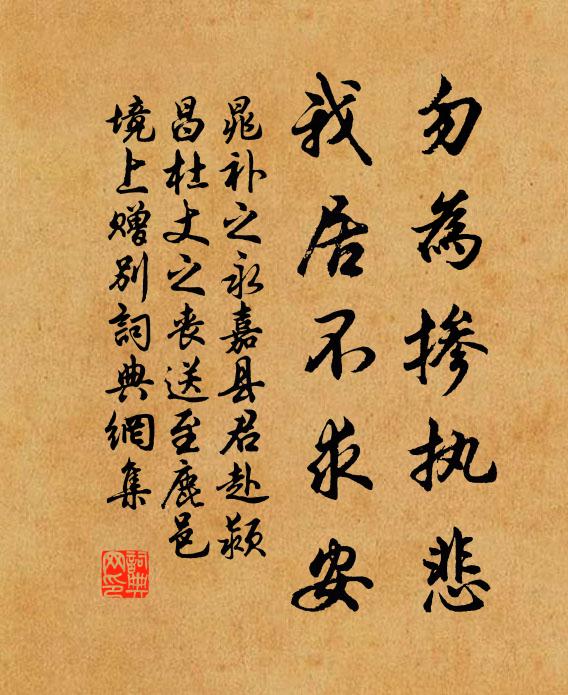 勿為掺执悲
我居不求安
晁补之永嘉县君赴颍
昌杜丈之丧送至鹿邑
境上赠别詞典網集
詞典
网印